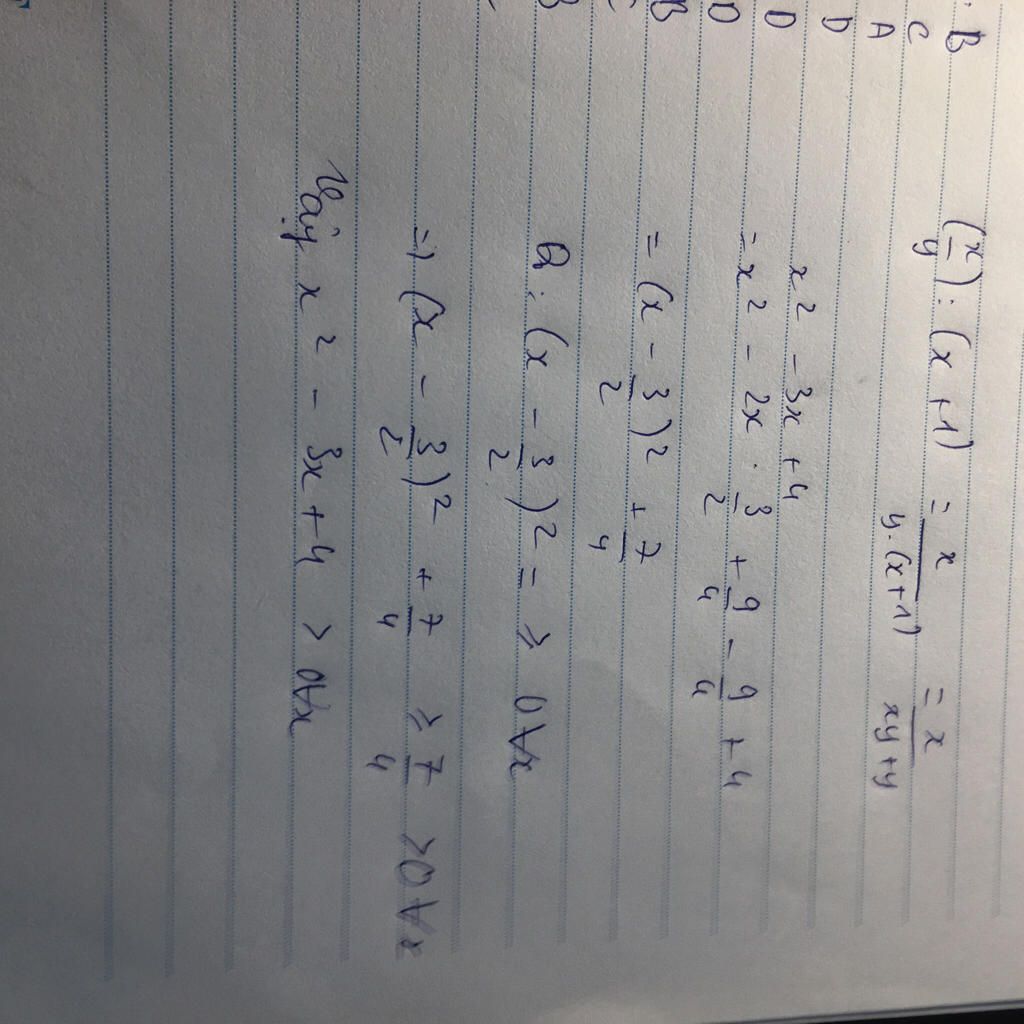 B
C
A
D
D
D
B
B
(x/y) : (x + 1) = x/(y.(x+1)) = x/(xy+y)
x² - 3x + 4
= x² - 2x . 3/2 + 9/4 - 9/4 + 4
= (x - 3/2)² + 7/4
(x - 3/2)² = ≥ 0 ∀x
=> (x - 3/2)² + 7/4 ≥ 7/4 > 0 ∀x
Vậy x² - 3x + 4 > 0 ∀x